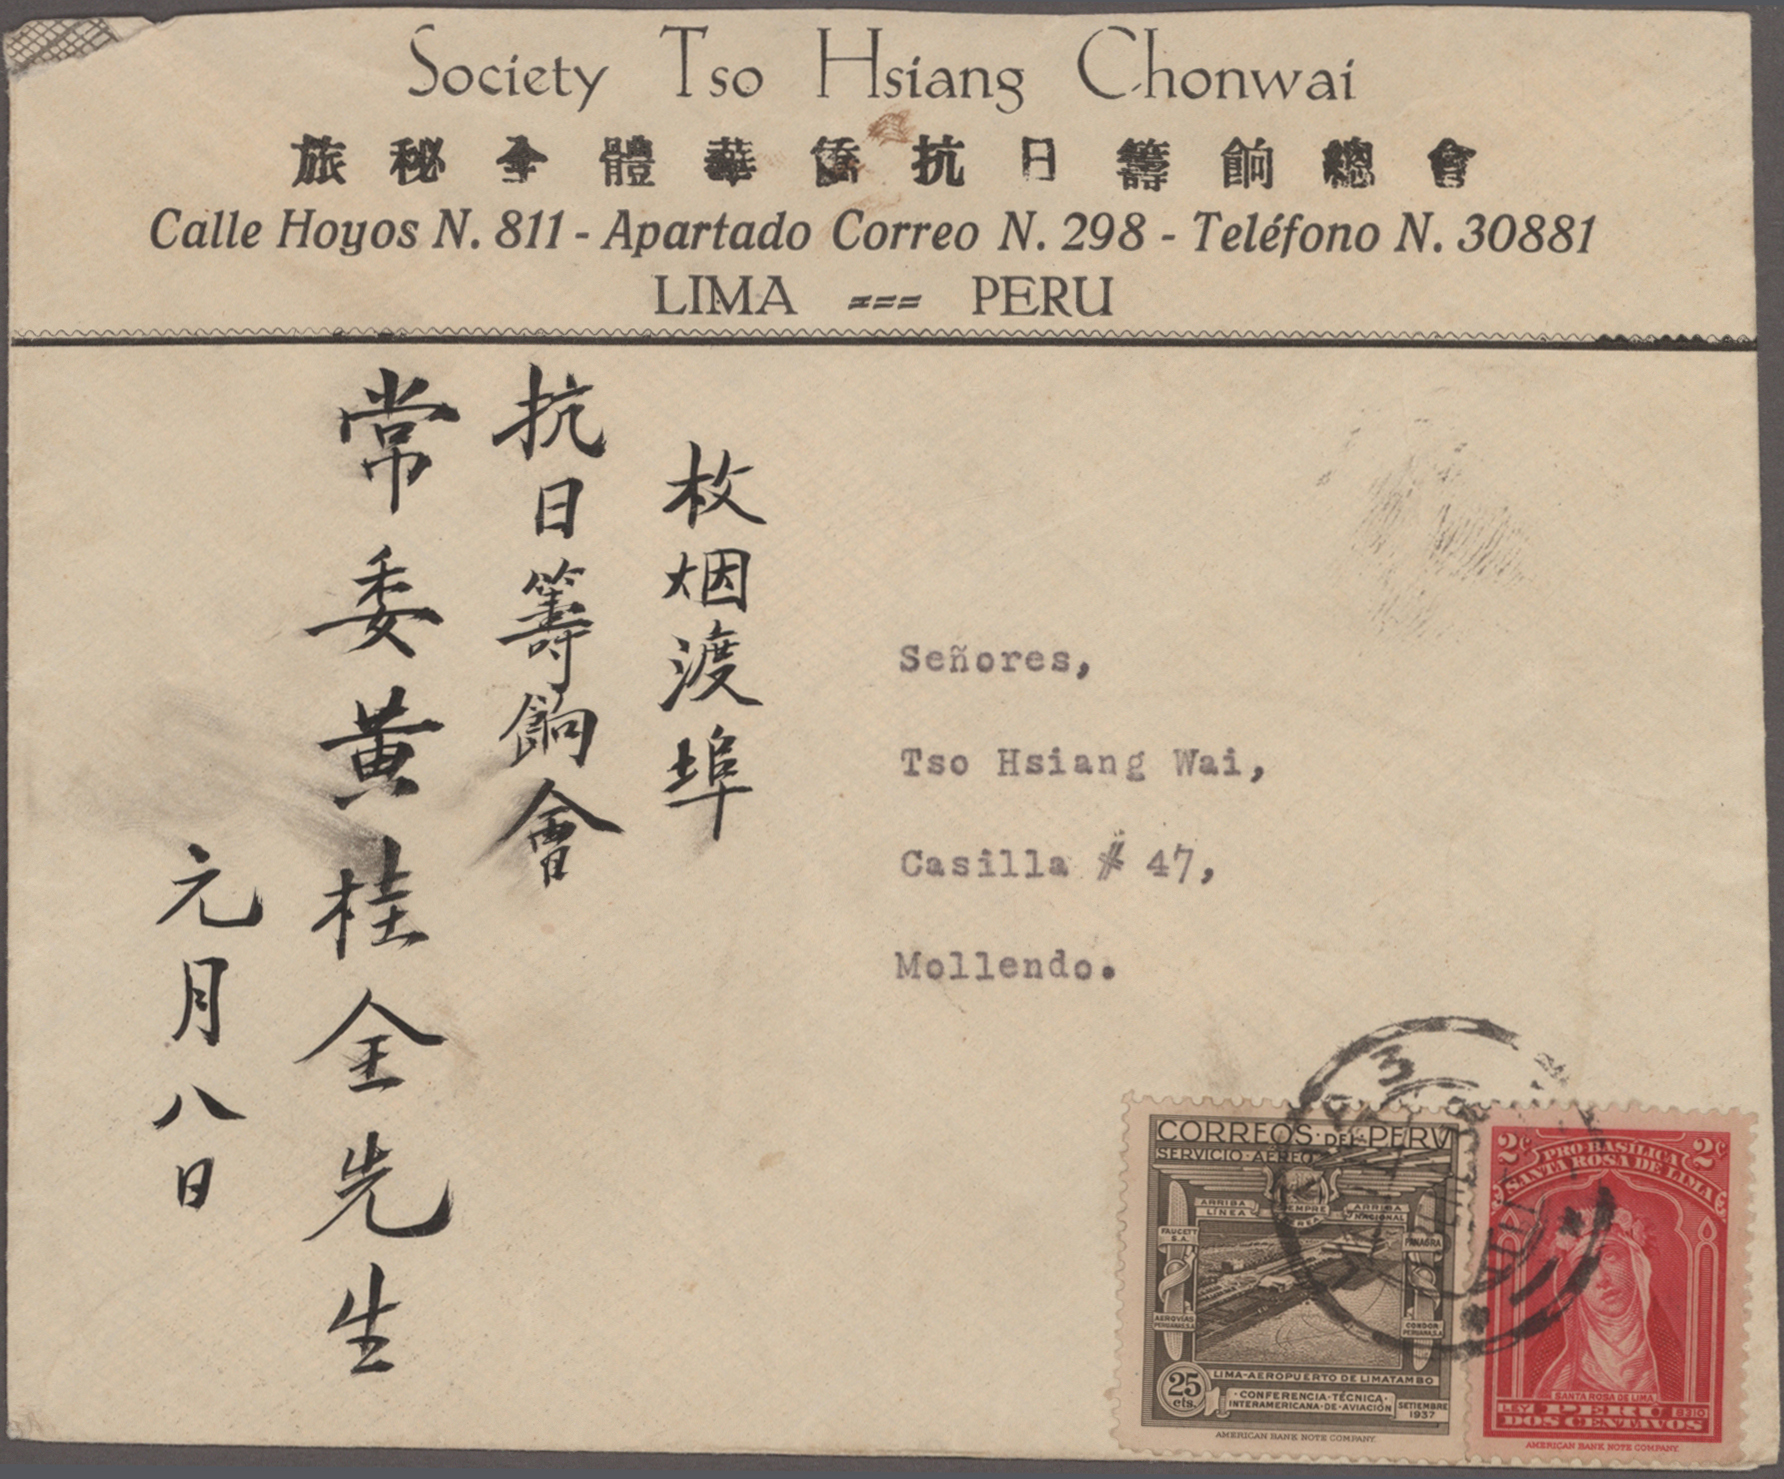 Society Tso Hsiang Chonwai
旅秘全體華僑抗日籌餉總會
Calle Hoyos N. 811 - Apartado Correo N. 298 - Teléfono N. 30881
LIMA === PERU
枚烟渡埠
抗日籌餉會
常委黄桂全先生
元月八日
Señores,
Tso Hsiang Wai,
Casilla # 47,
Mollendo.
CORREOS·DEL·PERU
SERVICIO·AEREO
ARRIBA SIEMPRE ARRIBA
LINEA AEREA NACIONAL
FAUCETT S.A.
PANAGRA
AEROVIAS PERUANAS, S.A.
CONDOR PERUANA, S.A.
LIMA-AEROPUERTO DE LIMATAMBO
25 cts.
·CONFERENCIA·TÉCNICA·
INTERAMERICANA·DE·AVIACIÓN
SETIEMBRE 1937
AMERICAN BANK NOTE COMPANY.
2c 2c
PRO BASÍLICA
SANTA ROSA DE LIMA
SANTA ROSA DE LIMA
LEY PERU 8310
DOS CENTAVOS
AMERICAN BANK NOTE COMPANY.